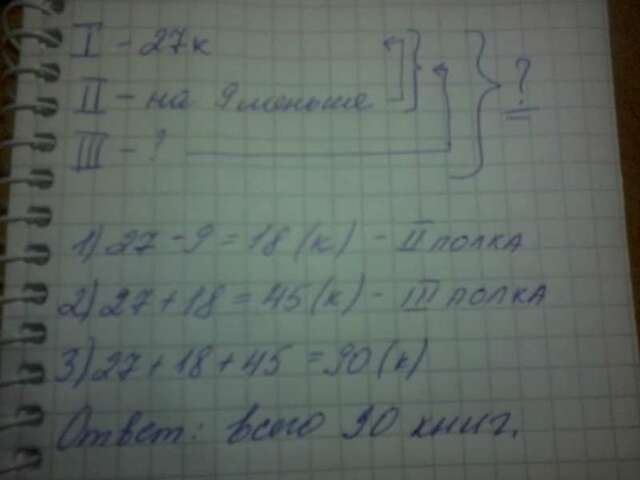 I - 27к
II - на 9 меньше
III - ?
?
1) 27 - 9 = 18 (к) - II полка
2) 27 + 18 = 45 (к) - III полка
3) 27 + 18 + 45 = 90 (к)
Ответ: всего 90 книг.